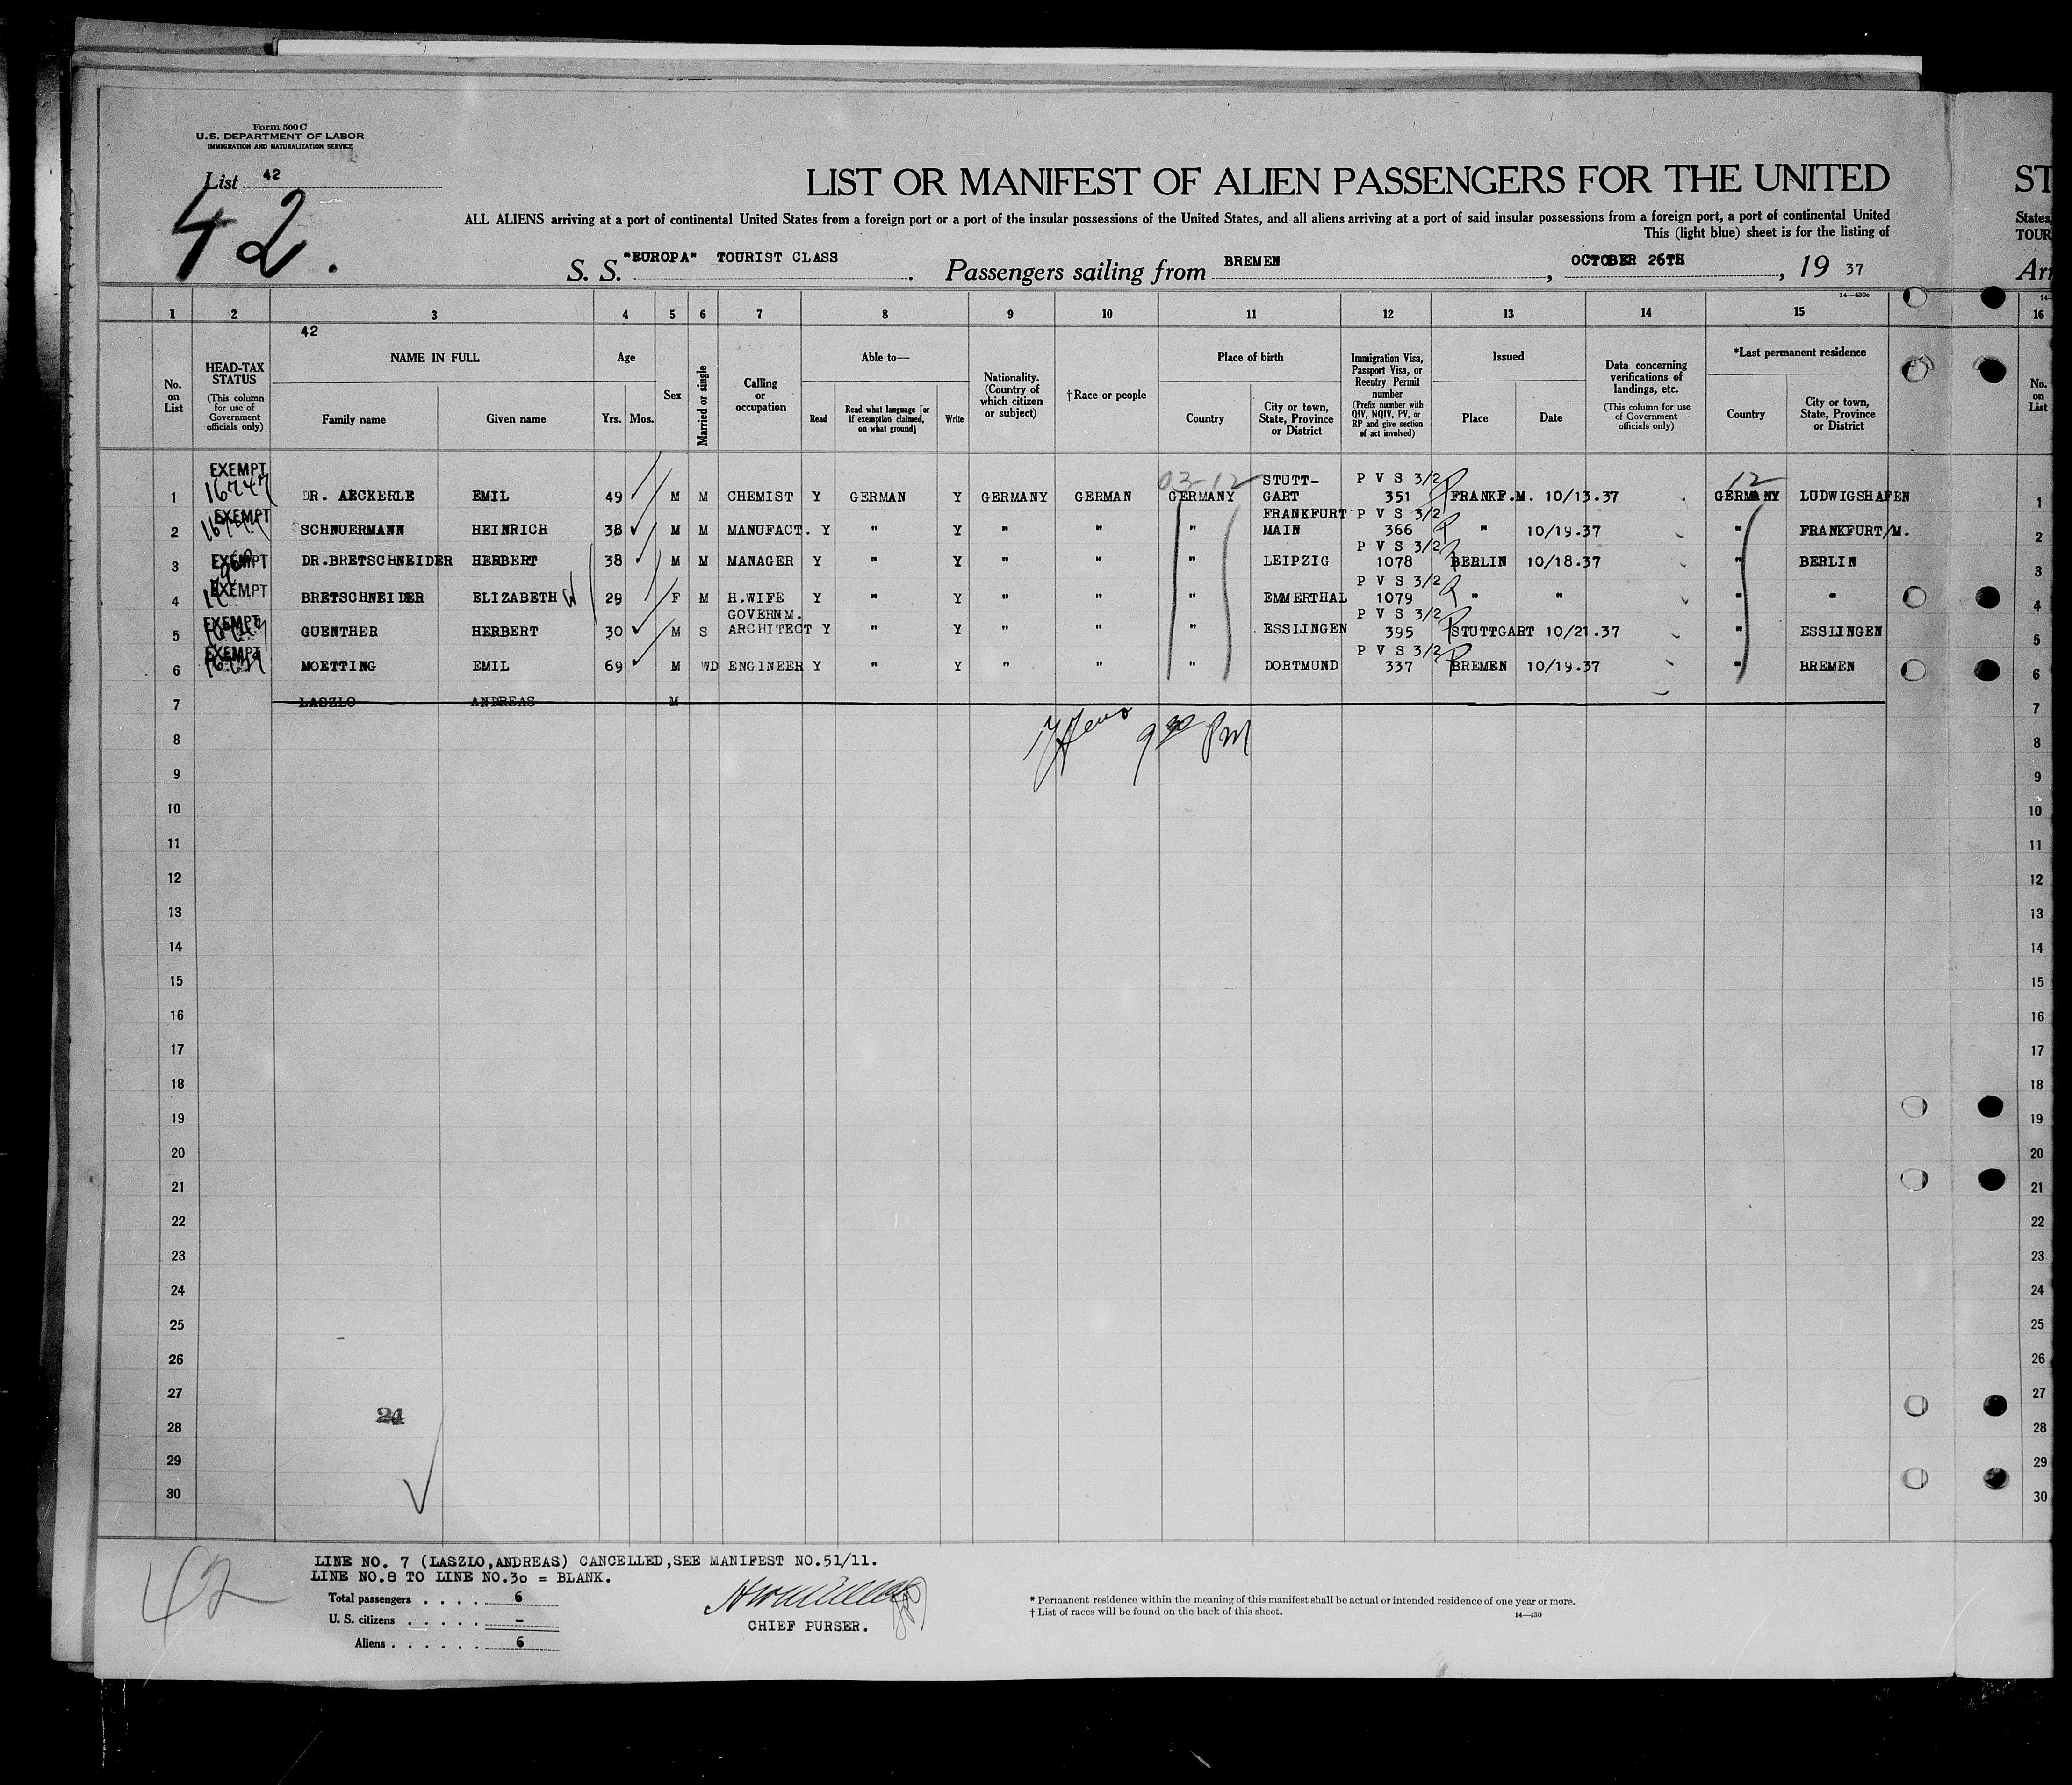 Form 500 C
U.S. DEPARTMENT OF LABOR
IMMIGRATION AND NATURALIZATION SERVICE
List 42
42.
LIST OR MANIFEST OF ALIEN PASSENGERS FOR THE UNITED
ST
ALL ALIENS arriving at a port of continental United States from a foreign port or a port of the insular possessions of the United States, and all aliens arriving at a port of said insular possessions from a foreign port, a port of continental United
States,
This (light blue) sheet is for the listing of
TOUR
S. S. "EUROPA" TOURIST CLASS. Passengers sailing from BREMEN, OCTOBER 26TH, 19 37
Arr
14—430c
1 2 3 4 5 6 7 8 9 10 11 12 13 14 15 16
42
No. on List
HEAD-TAX STATUS (This column for use of Government officials only)
NAME IN FULL
Family name Given name
Age
Yrs. Mos.
Sex
Married or single
Calling or occupation
Able to—
Read
Read what language [or if exemption claimed, on what ground]
Write
Nationality. (Country of which citizen or subject)
†Race or people
Place of birth
Country
City or town, State, Province or District
Immigration Visa, Passport Visa, or Reentry Permit number (Prefix number with QIV, NQIV, PV, or RP and give section of act involved)
Issued
Place Date
Data concerning verifications of landings, etc. (This column for use of Government officials only)
*Last permanent residence
Country
City or town, State, Province or District
No. on List
03-12 12
1 EXEMPT DR. AECKERLE EMIL 49 M M CHEMIST Y GERMAN Y GERMANY GERMAN GERMANY STUTT-GART P V S 3/2 351 FRANKF.M. 10/13.37 GERMANY LUDWIGSHAFEN 1
2 EXEMPT SCHNUERMANN HEINRICH 38 M M MANUFACT. Y " Y " " " FRANKFURT MAIN P V S 3/2 366 " 10/19.37 " FRANKFURT/M. 2
3 EXEMPT DR.BRETSCHNEIDER HERBERT 38 M M MANAGER Y " Y " " " LEIPZIG P V S 3/2 1078 BERLIN 10/18.37 " BERLIN 3
4 EXEMPT BRETSCHNEIDER ELIZABETH 29 F M H.WIFE Y " Y " " " EMMERTHAL P V S 3/2 1079 " " " " 4
5 EXEMPT GUENTHER HERBERT 30 M S GOVERNM. ARCHITECT Y " Y " " " ESSLINGEN P V S 3/2 395 STUTTGART 10/21.37 " ESSLINGEN 5
6 EXEMPT MOETTING EMIL 69 M WD ENGINEER Y " Y " " " DORTMUND P V S 3/2 337 BREMEN 10/19.37 " BREMEN 6
7 LASZLO ANDREAS M 7
8 9 30 PM 8
9 9
10 10
11 11
12 12
13 13
14 14
15 15
16 16
17 17
18 18
19 19
20 20
21 21
22 22
23 23
24 24
25 25
26 26
27 27
24
28 28
29 29
30 30
42
LINE NO. 7 (LASZLO,ANDREAS) CANCELLED,SEE MANIFEST NO.51/11.
LINE NO.8 TO LINE NO.30 = BLANK.
Total passengers . . . . 6
U. S. citizens . . . . . –
Aliens . . . . . . 6
CHIEF PURSER.
* Permanent residence within the meaning of this manifest shall be actual or intended residence of one year or more.
† List of races will be found on the back of this sheet.
14—430